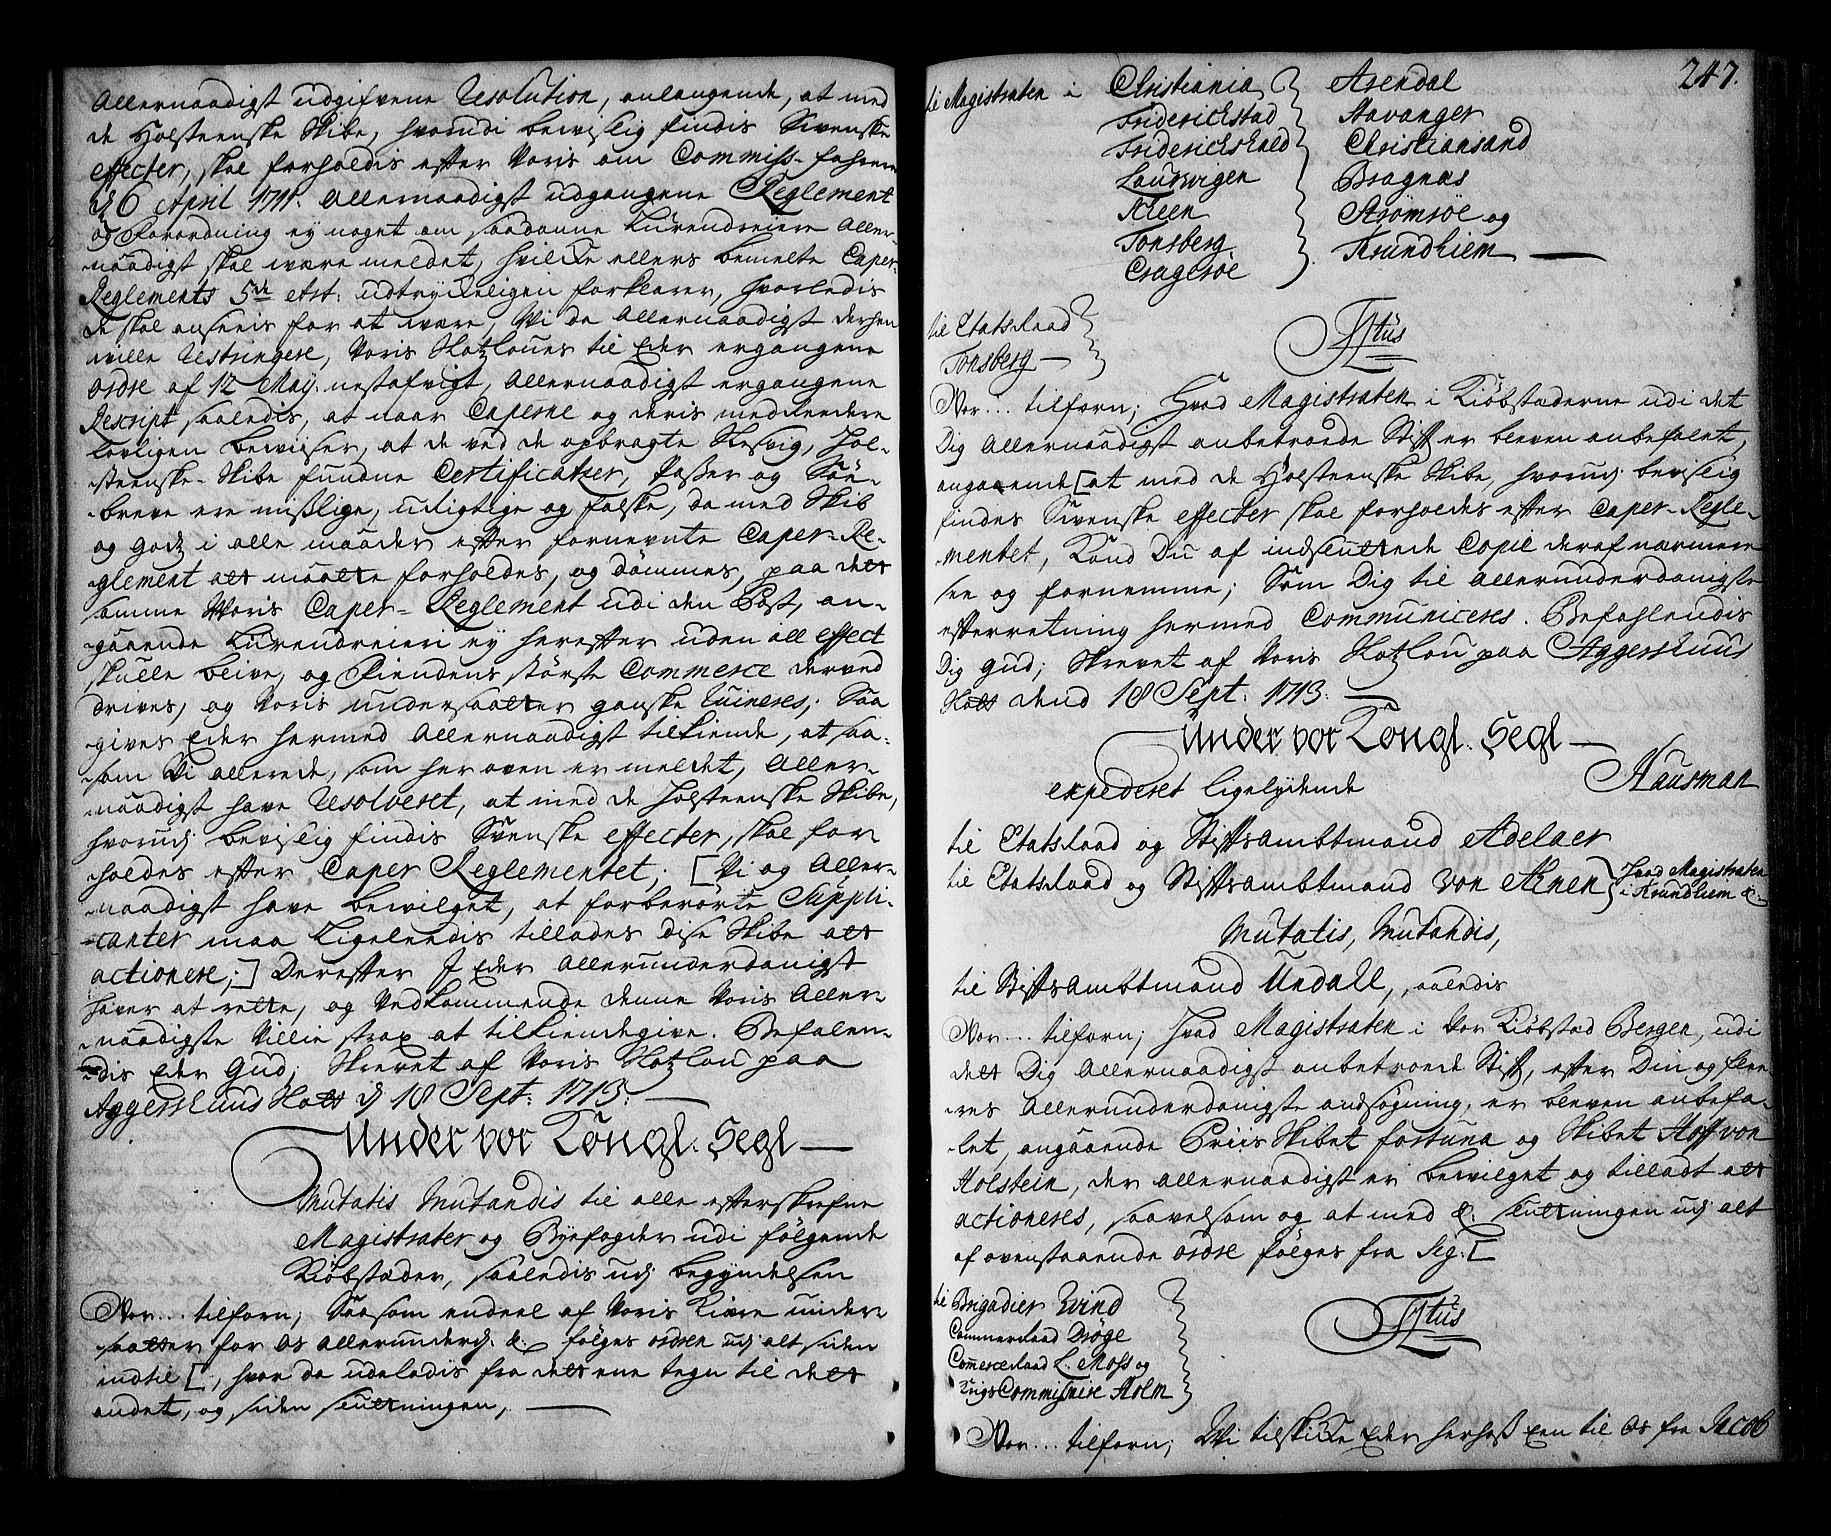 Allernaadigst udgifvene Resolution, anlangende, at med
de Holsteenske Skibe, hvorudi beviislig findis Svenske
effecter, skal forholdis efter Voris om Commiss-farerne
d 6 April 1711. Allernaadigst udgangene Reglement
og Forordning ey noget om saadanne Lurendreiere Aller-
naadigst skal være meldet, hvilke ellers bemelte Caper-
Reglements 5te Art: udtrykkeligen forklarer, hvorledis
de skal ansees for at være, Vi da Allernaadigst derhen
wille restringere, Voris til Eder ergangene
ordre af 12 May. nestafvigt, Allernaadigst ergangene
Rescript saaledis, at naar Caperne og deris medreedere
lovligen beviiser, at de ved de opbragte Slesvig, Hol-
steenske Skibe fundne Certificatser, Passer og Söe-
breve ere mislige, urigtige og falske, da med Skib
og Godz i alle maader efter fornevnte Caper-Re-
glement alt maatte forholdes, og dömmes, paa det
samme Voris Caper-Reglement udi den Post, an-
gaaende Lurendreieri ey herefter uden all effect
skulle blive, og Fiendens störste Commerce derved
drives, og Voris undersaatter ganske ruineres; Saa
gives Eder hermed Allernaadigst tilkiende, at saa-
som Vi allerede, som her oven er meldet, Aller-
naadigst have Resolveret, at med de Holsteenske Skibe,
hvorudj beviislig findis Svenske effecter, skal for-
holdes efter Caper Reglementet; [Vi og Aller-
naadigst have bewilget, at forberörte Suppli-
canter maa ligeledis tillades disse Skibe at
actionere;] Derefter I Eder Allerunderdanigst
haver at rette, og Vedkommende denne Voris Aller-
naadigste Villie strax at tilkiendegive. Befalen-
dis Eder Gud; Skrevet af Voris paa
Aggershuus Slott d 18 Sept: 1713.
Under vor Kongl. Segl
Mutatis Mutandis til alle efterskrefne
Magistrater og Byefogder udi fölgende
Kiöbstæder, saaledis udj begyndelsen
Vor... tilforn; Saasom endeel af Voris kiære under-
saatter for Os allerunderd: &. fölges ordren udj alt siden
indtil [, hvor da udeladis fra det ene tegn til det
andet, og siden slutningen,
247.
til Magistraten i Christiania Arendal
Friderichstad Stavanger
Friderichshald Christiansand
Laurwigen Bragnæs
Skeen Strömsöe og
Tonsberg Trundhiem
Cragersöe
til Etatsraad
Tonsberg
Vor... tilforn; Hvad Magistraten i Kiöbstæderne udi det
Dig Allernaadigst anbetroede Stift er bleven anbefalet,
angaaende [at med de Holsteenske Skibe, hvorudj beviislig
findes Svenske effecter skal forholdes efter Caper-Regle-
mentet, kand Du af indsluttede Copie deraf nærmere
see og fornemme; Som Dig til Allerunderdanigste
efterretning hermed Communiceres. Befahlendis
Dig Gud; Skrevet af Voris paa Aggershuus
Slott dend 18 Sept: 1713.
Under vor Kongl. Segl
Hausman
expederet ligelydende
til Etatsraad og Stiftsambtmand Adelaer
til Etatsraad og Stiftsambtmand von Ahnen } Hvad Magistraten
i Trundhiem &.
Mutatis, Mutandis,
til Stiftsambtmand Undall, saaledis
Vor... tilforn; Hvad Magistraten i Vor Kiöbstad Bergen, udi
det Dig Allernaadigst anbetroede Stift, efter Din og flee-
res Allerunderdanigste ansögning, er bleven anbefa-
let, angaaende Priis Skibet fortuna og Skibet Hoff von
Holstein, der Allernaadigst er bewilget og tilladt at
actioneres, saavelsom og at med &. slutningen udj alt
af ovenstaaende ordre fölges fra Sig: [
til Brigadier Wind
Commerceraad Dröge
Commerceraad L. Moss og
Krigs Commissaire Holm
Vor... tilforn; Wi tilskikke Eder herhos een til Os fra Jacob